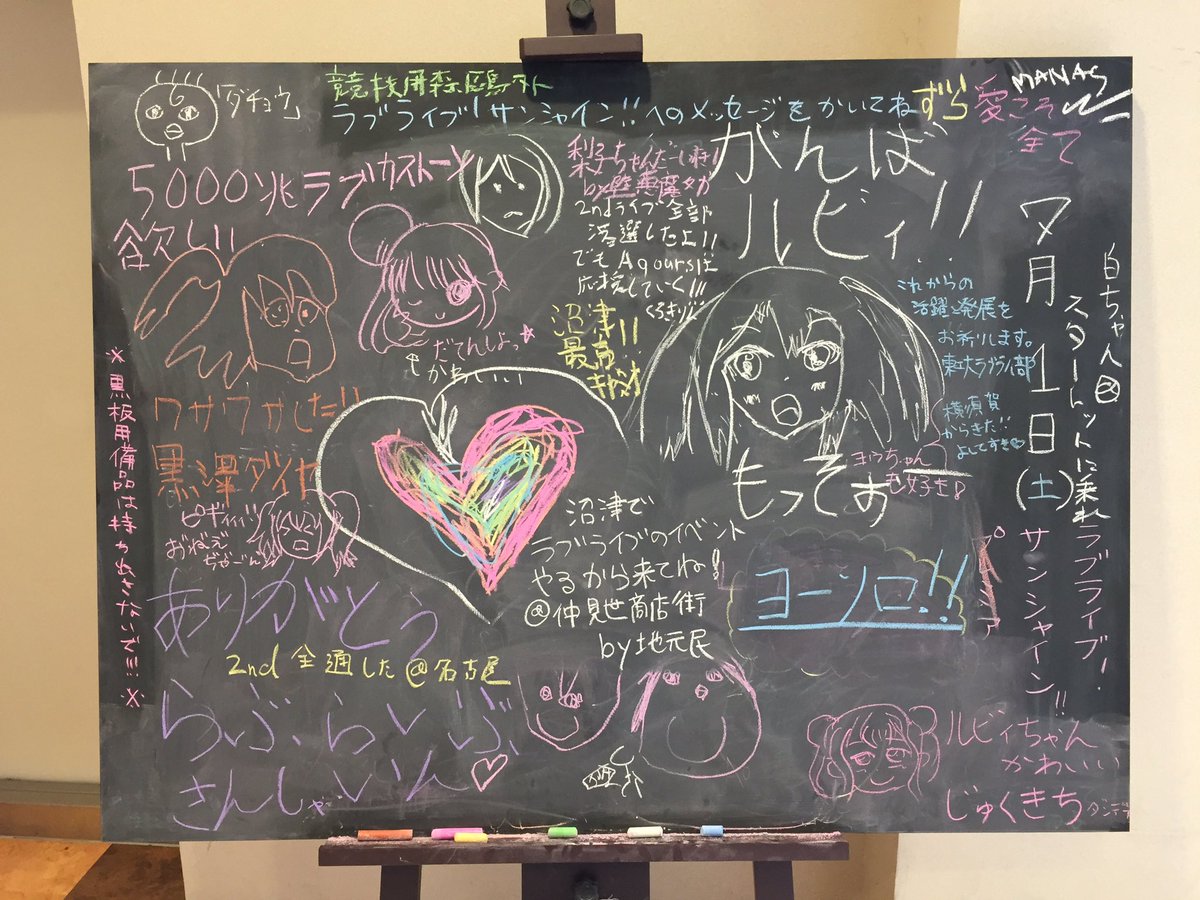 「ダチョウ」
競技用森鴎外
ラブライブ!サンシャイン!!へのメッセージをかいてね
ずら
愛こそ
全て
MANAS
5000兆ラブカストーン
欲しい
梨子ちゃんだーいすき!
2ndライブ全部
落選したよ!!
でもAqoursは
応援していく!!!
がんば
ルビィ!!
7月1日(土)
サンシャイン!!
スタートットに乗れ
ラブライブ!
これからの
活躍と発展を
お祈りします。
東大ラブライブ部
沼津!!
最高
だてんしょっ☆
かわいい
横須賀
からきた!!
ヨウちゃん
もっそぉ
ワサワサした!!
黒澤ダイヤ
ピギィィィ
おねえ
ぢゃーん
※黒板用備品は持ち出さないで!!!※
沼津で
ラブライブのイベント
やるから来てね!
@仲見世商店街
by地元民
ヨーソロー!!
ありがとう
2nd 全通した@名古屋
らぶらいぶ
さんしゃいん♡
ルビィちゃん
かわいい
じゅくきち